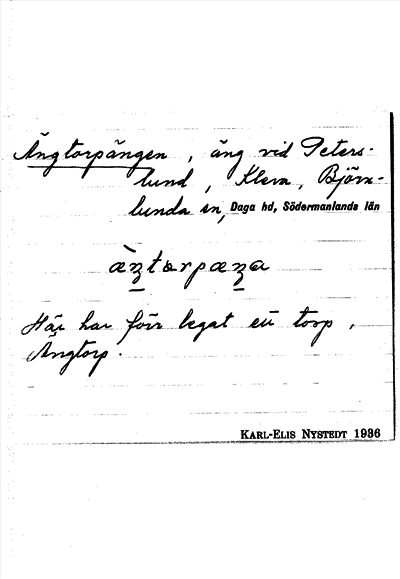 Ängtorpängen, äng vid Peters-
lund, Kleva, Björn-
lunda sn, Daga hd, Södermanlands län
Här har förr legat ett torp,
Ängtorp.
KARL-ELIS NYSTEDT 1936